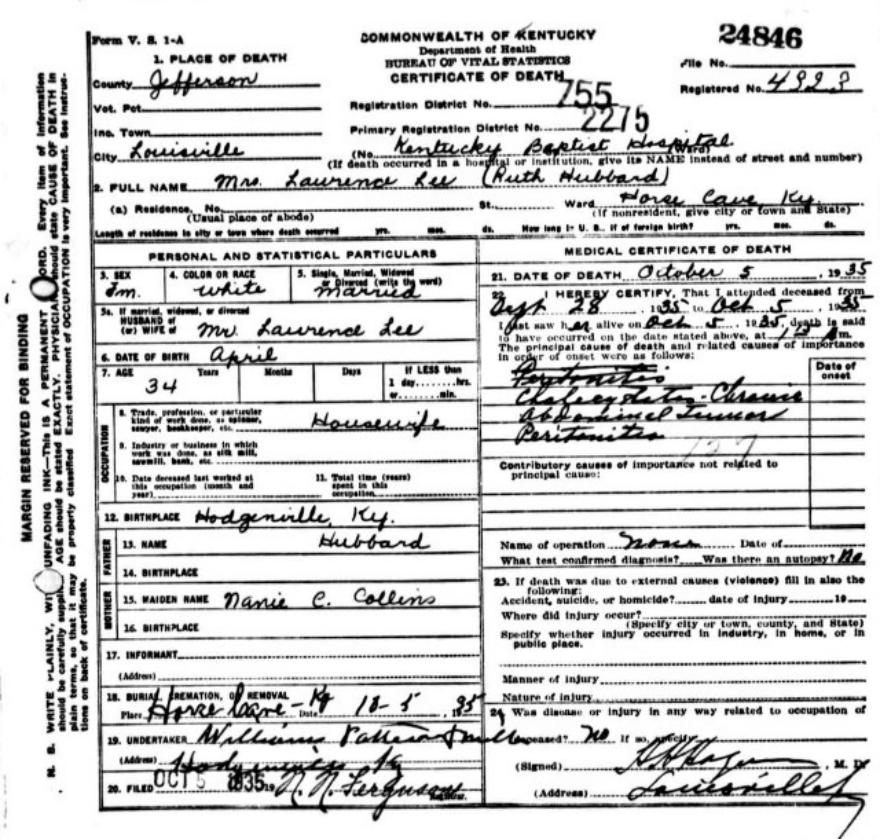 Form V. S. 1-A
COMMONWEALTH OF KENTUCKY
Department of Health
BUREAU OF VITAL STATISTICS
CERTIFICATE OF DEATH
24846
File No.
Registered No. 4323
1. PLACE OF DEATH
County Jefferson
Vot. Pct.
Inc. Town
City Louisville
Registration District No. 755
Primary Registration District No. 2275
(No. Kentucky Baptist Hospital Ward)
(If death occurred in a hospital or institution, give its NAME instead of street and number)
2. FULL NAME Mrs. Laurence Lee (Ruth Hubbard)
(a) Residence, No. St. Ward Horse Cave, Ky.
(Usual place of abode) (If nonresident, give city or town and State)
Length of residence in city or town where death occurred yrs. mos. ds. How long in U. S., if of foreign birth? yrs. mos. ds.
PERSONAL AND STATISTICAL PARTICULARS
3. SEX Fm.
4. COLOR OR RACE White
5. Single, Married, Widowed or Divorced (write the word) Married
5a. If married, widowed, or divorced
HUSBAND of
(or) WIFE of Mr. Laurence Lee
6. DATE OF BIRTH April
7. AGE 34 Years Months Days If LESS than
1 day, hrs.
or min.
OCCUPATION
8. Trade, profession, or particular
kind of work done, as spinner,
sawyer, bookkeeper, etc. Housewife
9. Industry or business in which
work was done, as silk mill,
sawmill, bank, etc.
10. Date deceased last worked at
this occupation (month and
year)
11. Total time (years)
spent in this
occupation
12. BIRTHPLACE Hodgenville, Ky.
FATHER
13. NAME Hubbard
14. BIRTHPLACE
MOTHER
15. MAIDEN NAME Nanie C. Collins
16. BIRTHPLACE
17. INFORMANT
(Address)
18. BURIAL, CREMATION, OR REMOVAL
Place Horse Cave-Ky Date 10-5, 1935
19. UNDERTAKER Williams
(Address) Ky
20. FILED OCT 5 1935 19 N. N. Ferguson
MEDICAL CERTIFICATE OF DEATH
21. DATE OF DEATH October 5, 1935
22. I HEREBY CERTIFY, That I attended deceased from
Sept 28, 1935 to Oct 5, 1935
I last saw her alive on Oct 5, 1935, death is said
to have occurred on the date stated above, at m.
The principal cause of death and related causes of importance
in order of onset were as follows:
Date of onset
Peritonitis
Cholecystitis-Chronic
Abdominal Tumor
Peritonitis
127
Contributory causes of importance not related to
principal cause:
Name of operation None Date of
What test confirmed diagnosis? Was there an autopsy? No
23. If death was due to external causes (violence) fill in also the
following:
Accident, suicide, or homicide? date of injury 19
Where did injury occur?
(Specify city or town, county, and State)
Specify whether injury occurred in industry, in home, or in
public place.
Manner of injury
Nature of injury
24. Was disease or injury in any way related to occupation of
deceased? No If so, specify
(Signed) M. D.
(Address) Louisville
MARGIN RESERVED FOR BINDING
N. B. WRITE PLAINLY, WITH UNFADING INK—THIS IS A PERMANENT RECORD. Every item of information
should be carefully supplied. AGE should be stated EXACTLY. PHYSICIANS should state CAUSE OF DEATH in
plain terms, so that it may be properly classified. Exact statement of OCCUPATION is very important. See instruc-
tions on back of certificate.